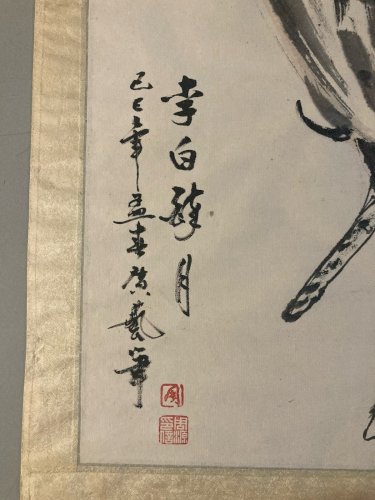 李白醉月
己巳年孟春廣藝筆